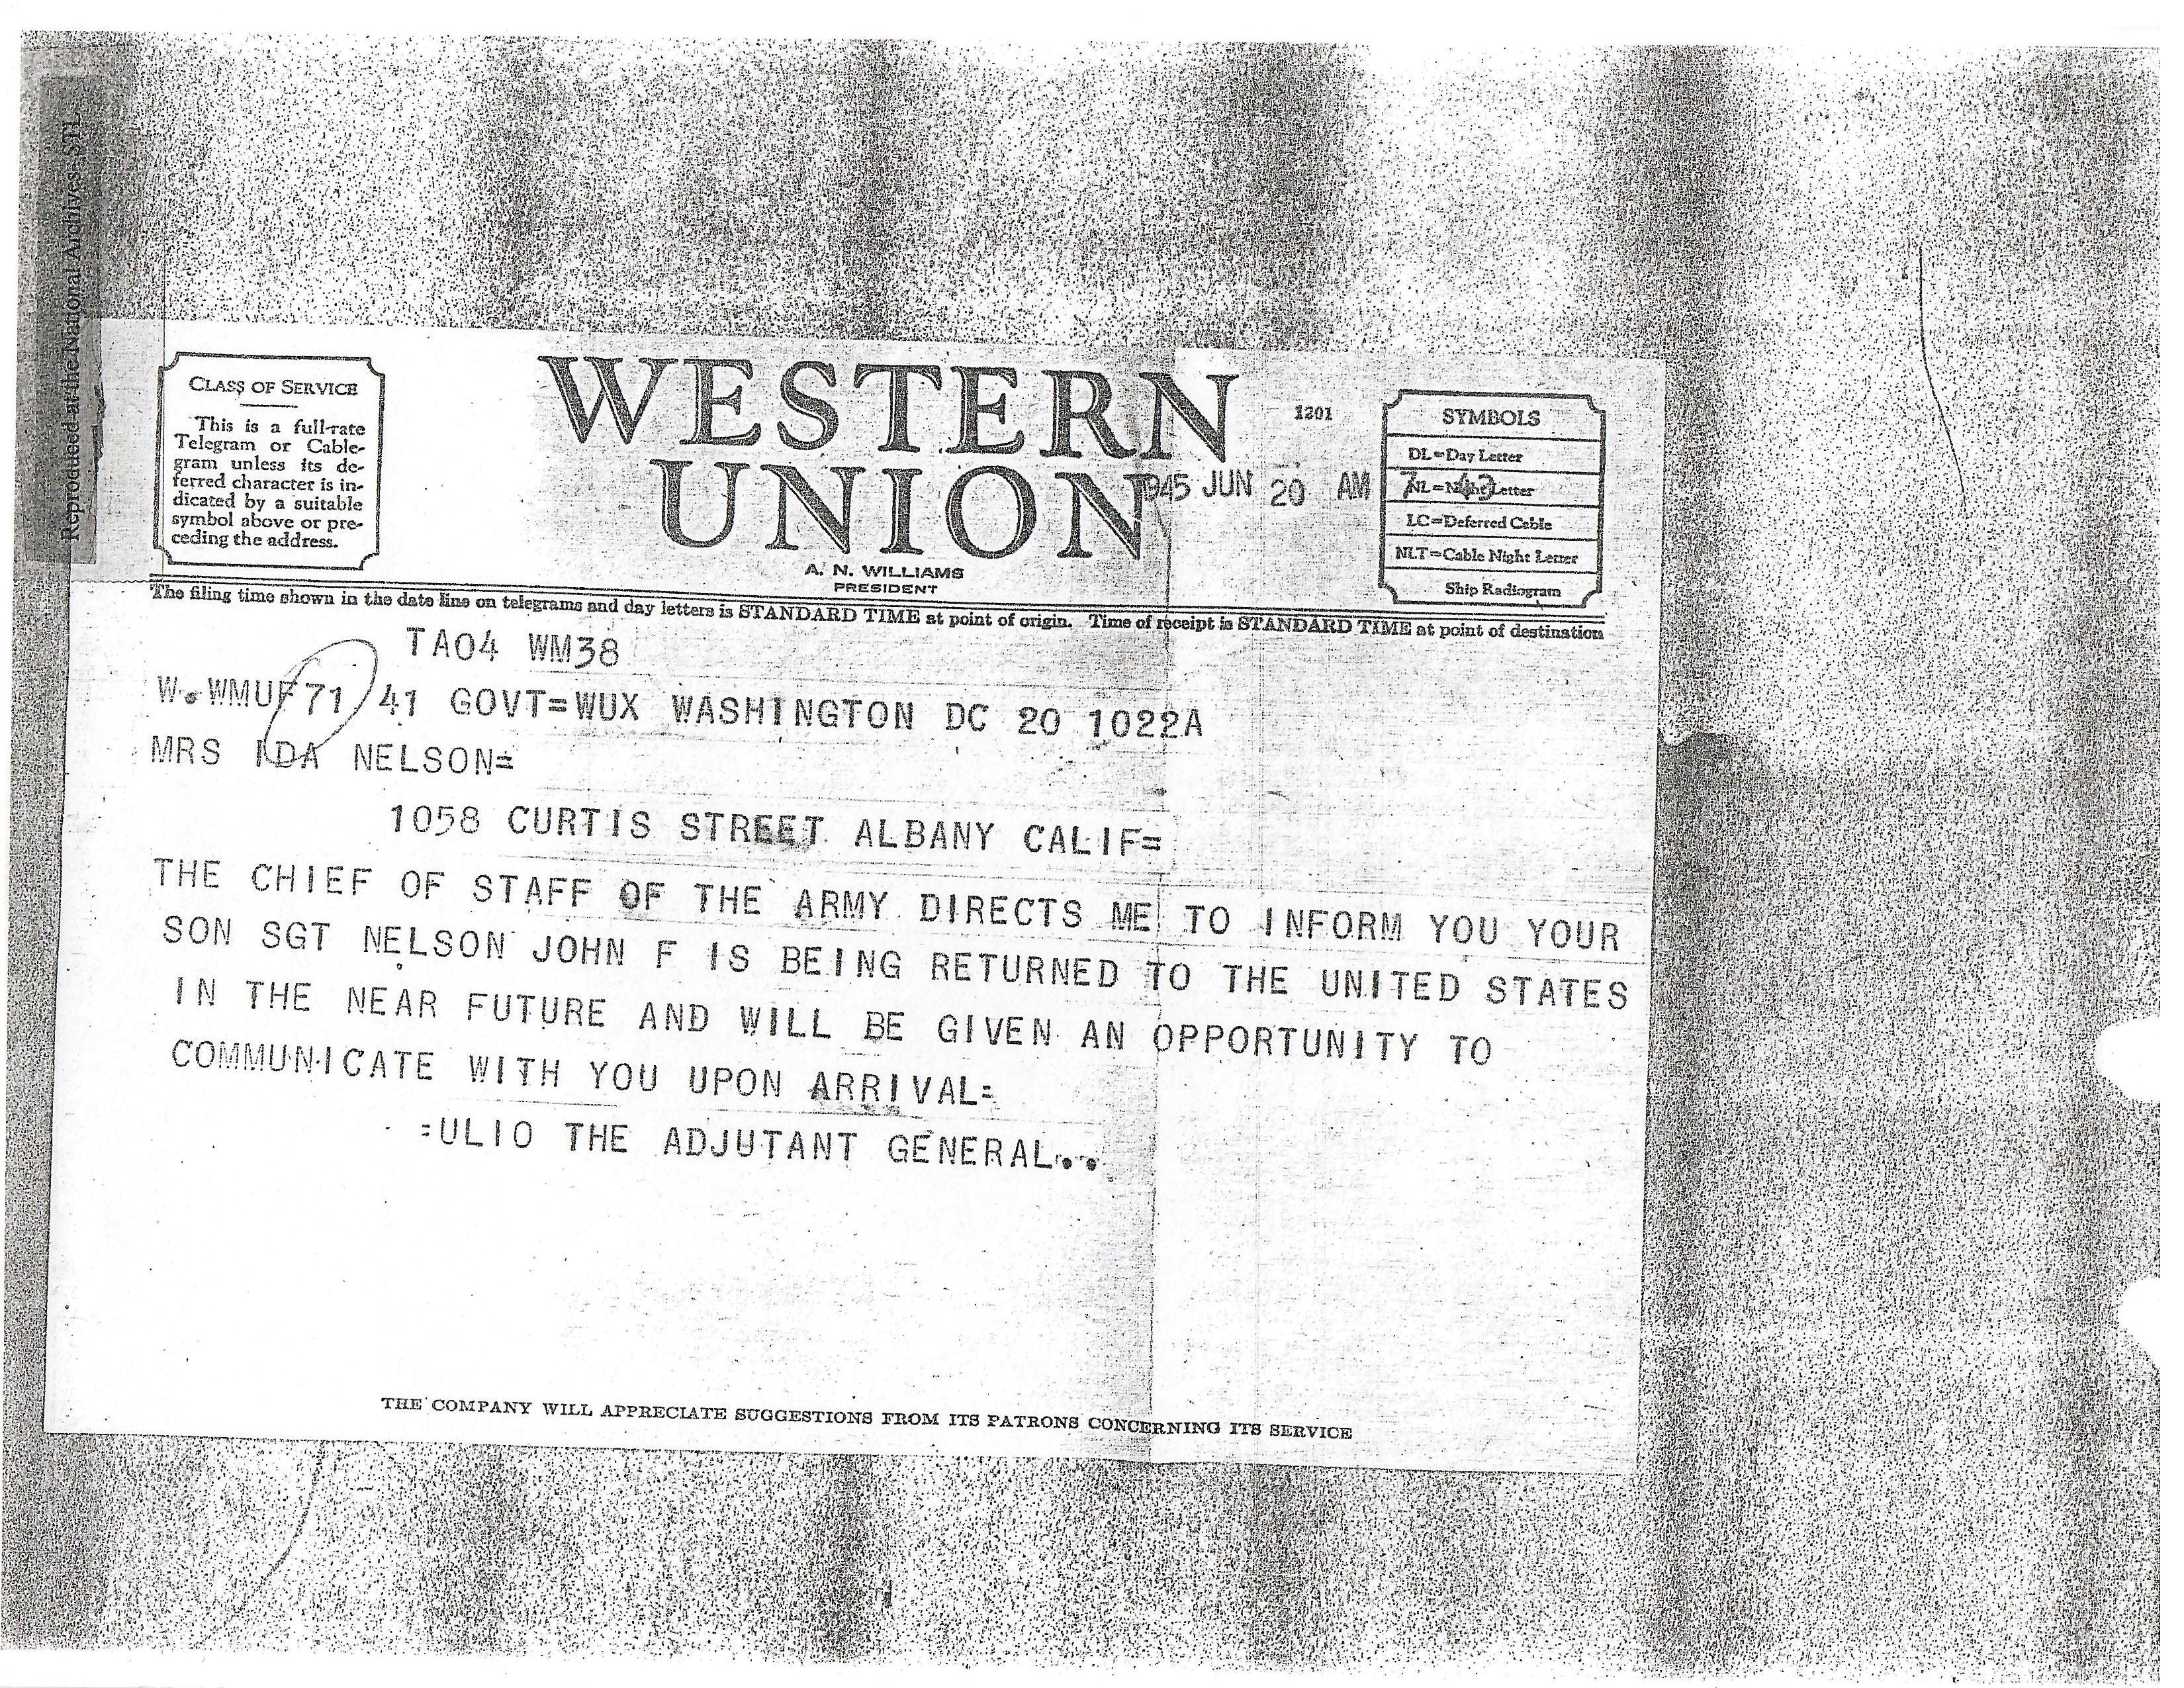 Reproduced at the National Archives-STL
CLASS OF SERVICE
This is a full-rate
Telegram or Cable-
gram unless its de-
ferred character is in-
dicated by a suitable
symbol above or pre-
ceding the address.
WESTERN
UNION
A. N. WILLIAMS
PRESIDENT
1201
1945 JUN 20 AM 7 43
SYMBOLS
DL=Day Letter
NL=Night Letter
LC=Deferred Cable
NLT=Cable Night Letter
Ship Radiogram
The filing time shown in the date line on telegrams and day letters is STANDARD TIME at point of origin. Time of receipt is STANDARD TIME at point of destination
TA04 WM38
W.WMUF71 41 GOVT=WUX WASHINGTON DC 20 1022A
MRS IDA NELSON=
1058 CURTIS STREET ALBANY CALIF=
THE CHIEF OF STAFF OF THE ARMY DIRECTS ME TO INFORM YOU YOUR
SON SGT NELSON JOHN F IS BEING RETURNED TO THE UNITED STATES
IN THE NEAR FUTURE AND WILL BE GIVEN AN OPPORTUNITY TO
COMMUNICATE WITH YOU UPON ARRIVAL=
=ULIO THE ADJUTANT GENERAL..
THE COMPANY WILL APPRECIATE SUGGESTIONS FROM ITS PATRONS CONCERNING ITS SERVICE